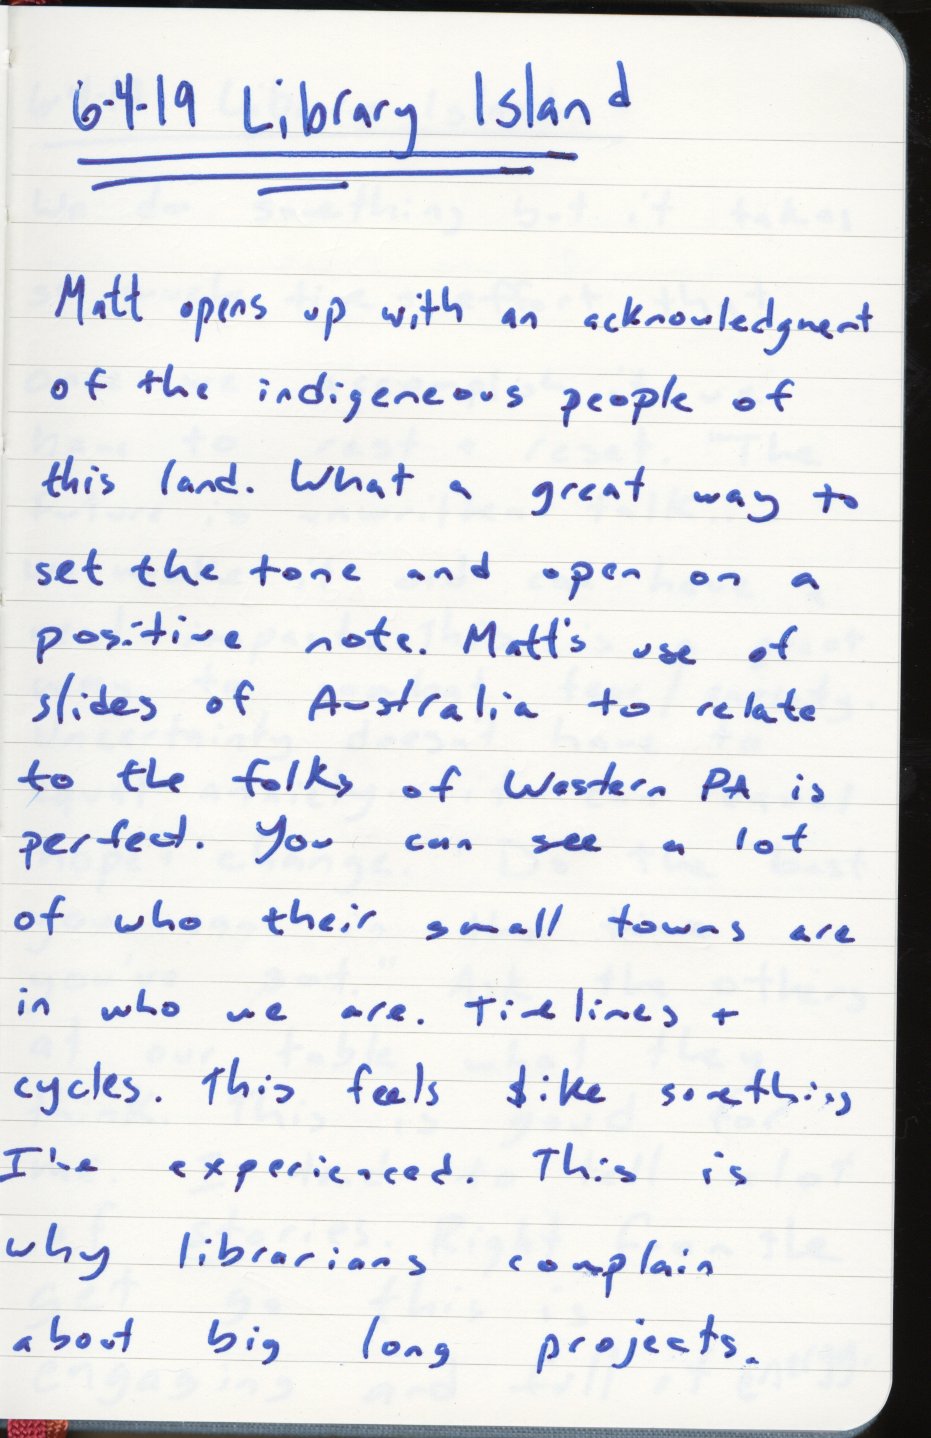 6-4-19 Library Island
Matt opens up with an acknowledgment
of the indigeneous people of
this land. What a great way to
set the tone and open on a
positive note. Matt's use of
slides of Australia to relate
to the folks of Western PA is
perfect. You can see a lot
of who their small towns are
in who we are. Timelines +
cycles. This feels like something
I've experienced. This is
why librarians complain
about big long projects.